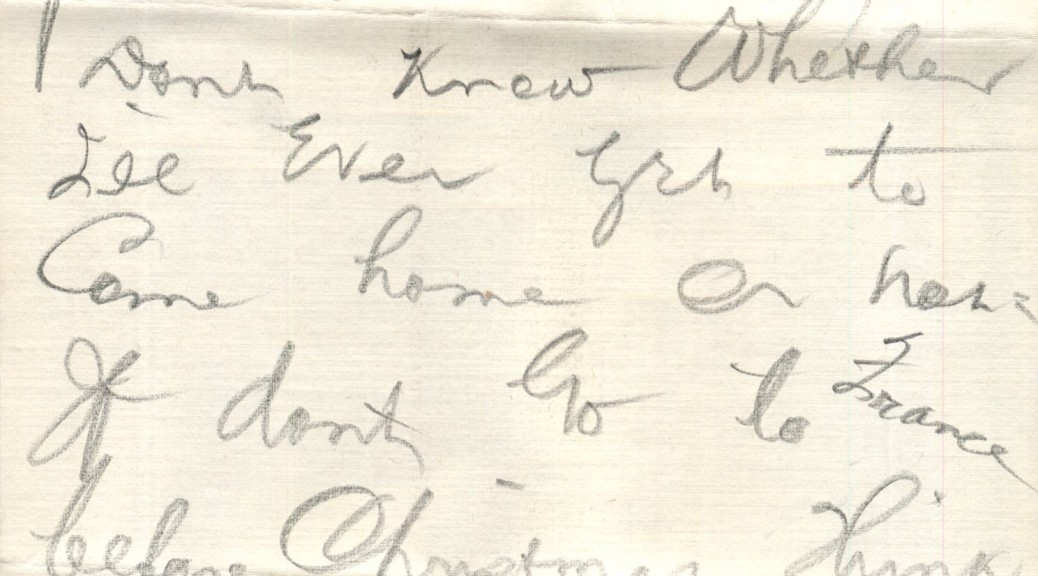 I Dont Know Whether
Ill Ever Get to
Come home or not=
If dont Go to France
before Christmas Think